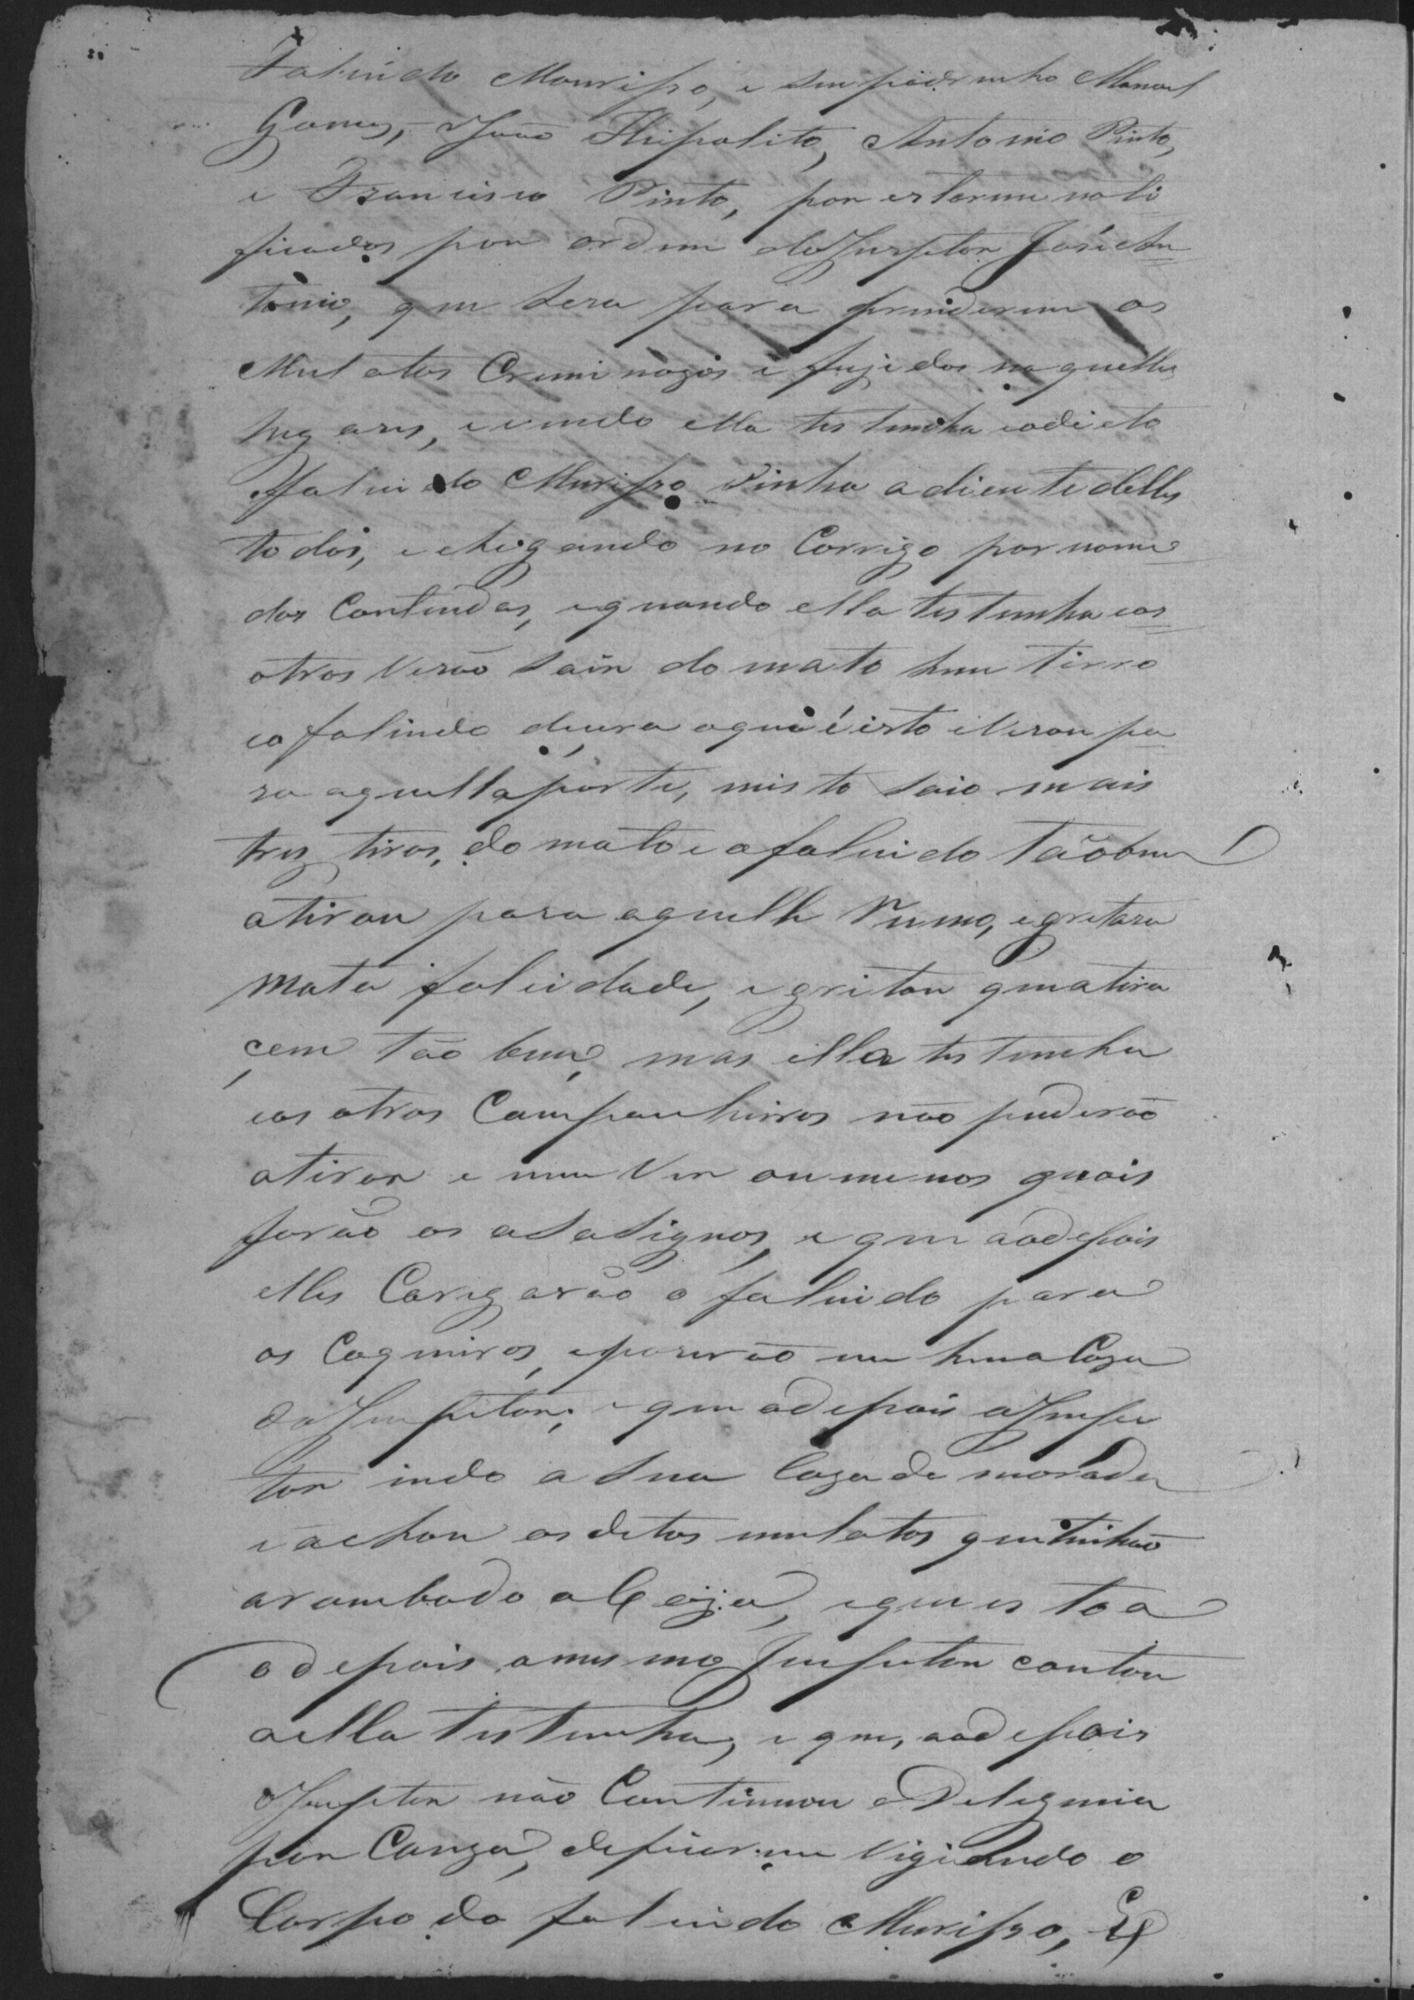 Faluido Mourisso, e seu padrinho Manoel
Gomes, João Hipolito, Antonio Pinto,
e Francisco Pinto, por estarem noti
ficados por ordem do Inspetor José An=
tonio, que sera para prinderem os
Mulatos Criminozos e fugidos naquelles
lugares, e vindo ella testunha e o dicto
Faluido Murisso vinha adiente delles
todos, e chegando no Corrigo por nome
dos Contendas, e quando ella testunha e os=
otros Verão sair do mato hum tirro
e o faluido dicera aqui é isto e Verou pa=
ra aquella parte, nisto saio mais
trez tiros, do mato e o faluido tãobem
atirou para aquelle Rumo, e gritara
mata falicidade, e gritou que atira
cem tão bem, mas ella testunha
e os otros Companhirros não puderão
atirar e nem Ver ao menos quais
forão os asasignos, e que aodepois
elles Carigarão o faluido para
os Coqueiros, e pozerão em huma Caza
do Inspetor, e que adepois o Inspe
tor indo a sua Caza de morada
e achou os ditos mulatos que tinhão
arombado a Caza, e que isto a
odepois o mesmo Inspetor contou
a ella testunha, e que, aodepois
o Inspetor não Continuou a Deligencia
por Cauza, de ficarem Vigiando o
Corpo do faluido Murisso, E